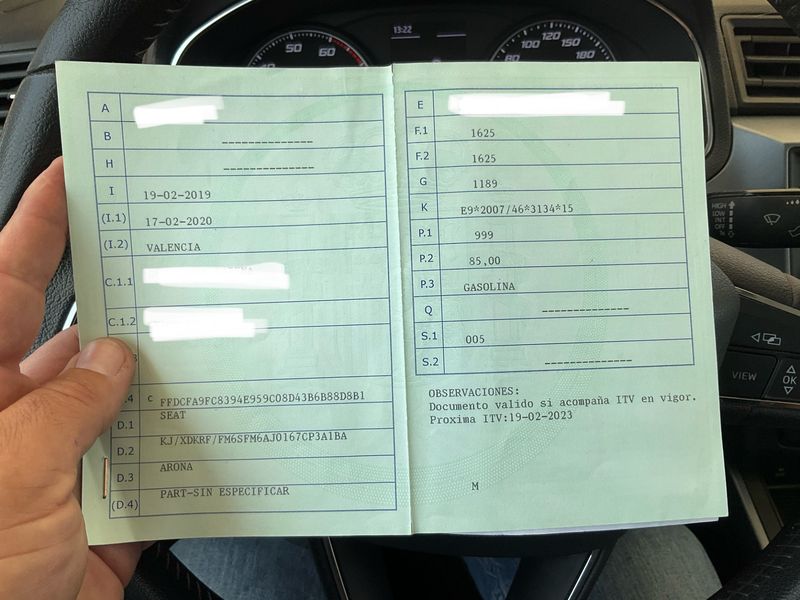 13:22
50 60
80 100 120 150 180
A
B --------------
H --------------
I 19-02-2019
(I.1) 17-02-2020
(I.2) VALENCIA
C.1.1
C.1.2
.4 C FFDCFA9FC8394E959C08D43B6B88D8B1
D.1 SEAT
D.2 KJ/XDKRF/FM6SFM6AJ0167CP3A1BA
D.3 ARONA
(D.4) PART-SIN ESPECIFICAR
E
F.1 1625
F.2 1625
G 1189
K E9*2007/46*3134*15
P.1 999
P.2 85,00
P.3 GASOLINA
Q --------------
S.1 005
S.2 --------------
OBSERVACIONES:
Documento valido si acompaña ITV en vigor.
Proxima ITV:19-02-2023
M
HIGH
LOW
INT
OFF
1x
VIEW
OK